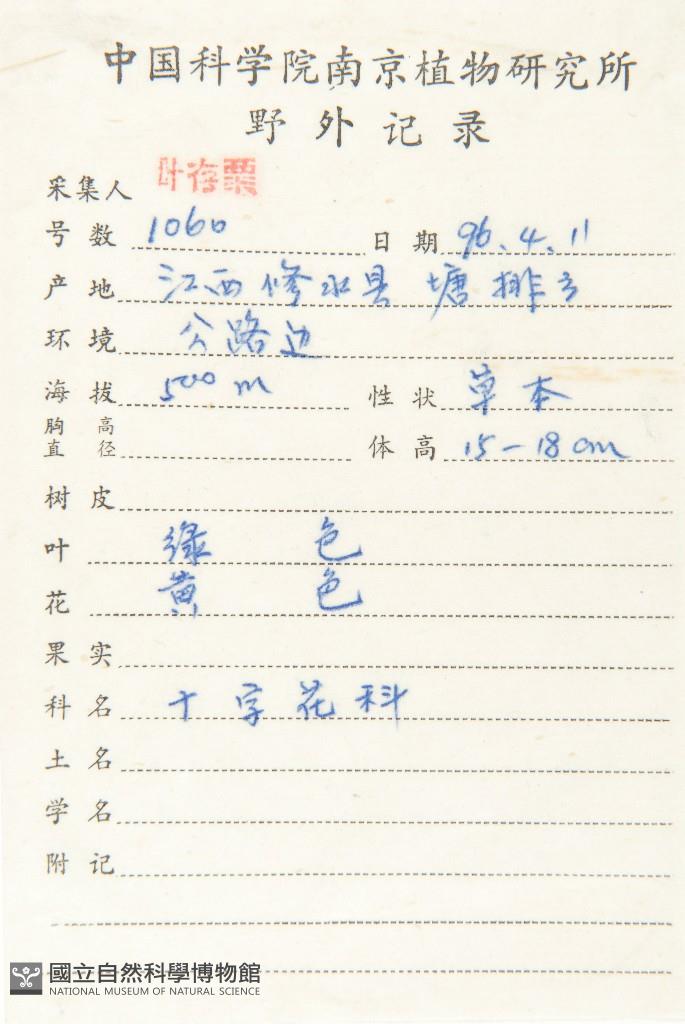 中国科学院南京植物研究所
野外记录
采集人 叶存粟
号数 1060 日期 96.4.11
产地 江西修水县塘排乡
环境 公路边
海拔 500m 性状 草本
胸高直径 体高 15-18cm
树皮
叶 绿色
花 黄色
果实
科名 十字花科
土名
学名
附记
國立自然科學博物館
NATIONAL MUSEUM OF NATURAL SCIENCE